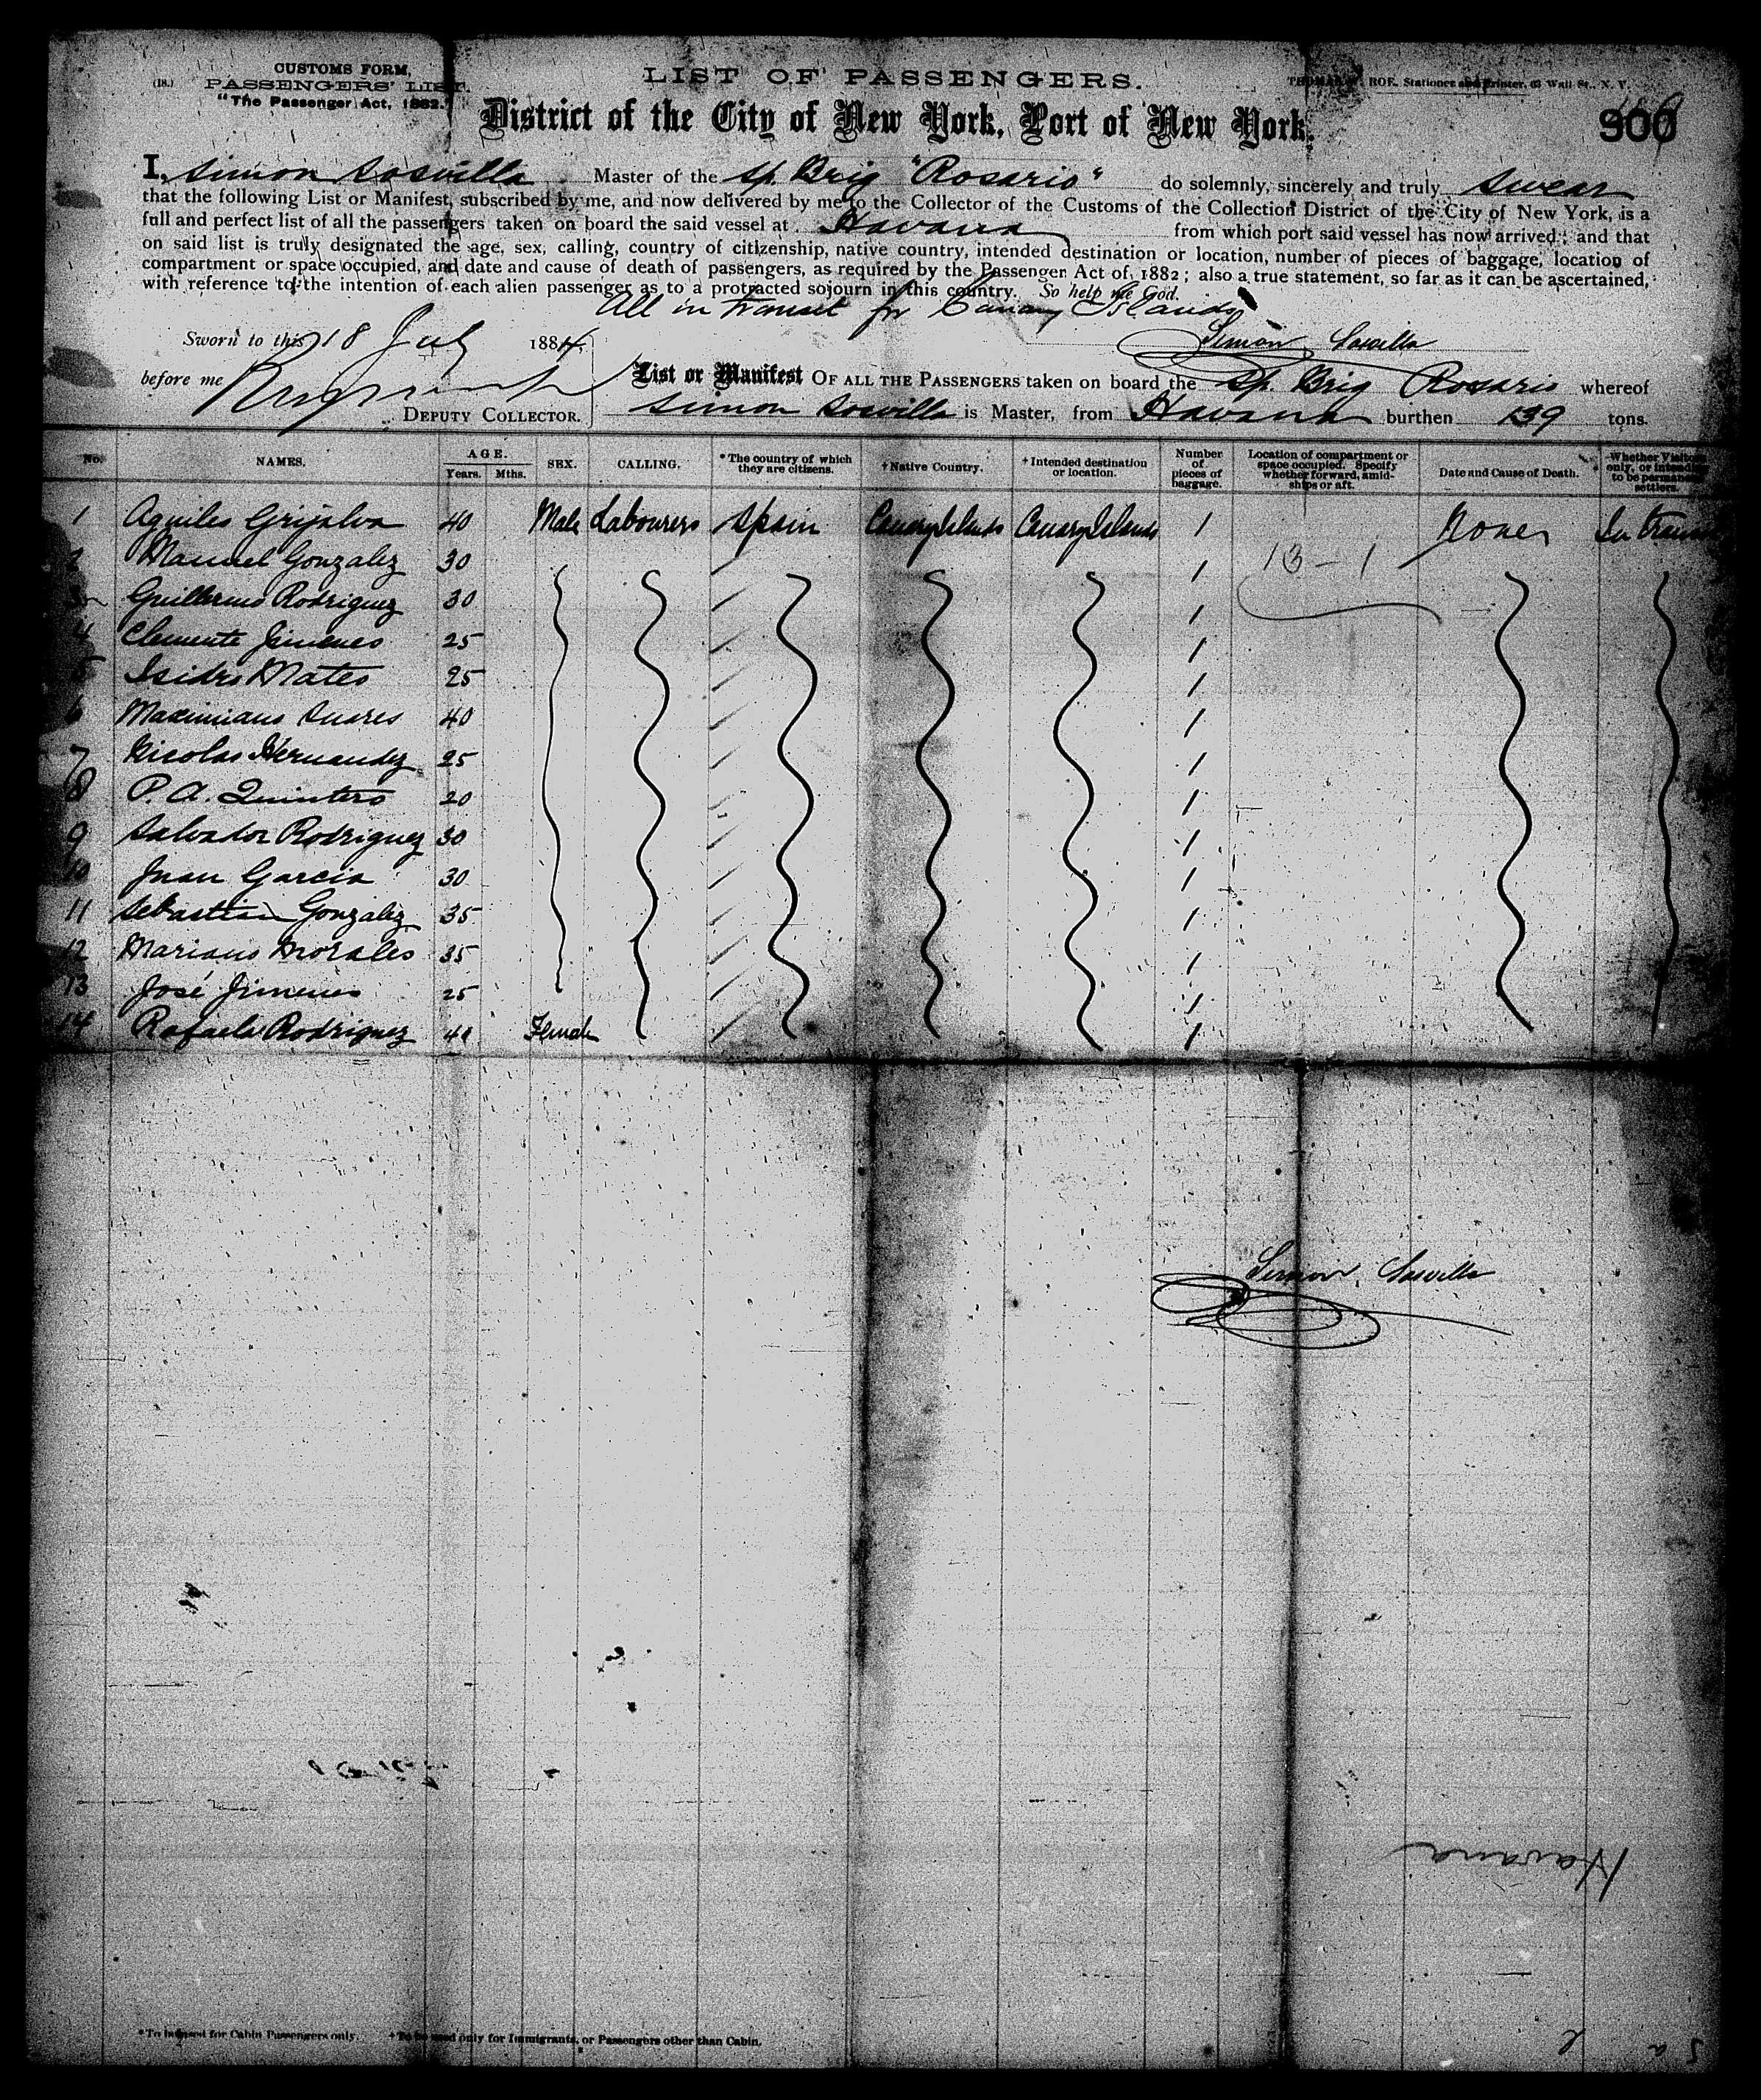 CUSTOMS FORM,
(18.) PASSENGERS' LIST.
"The Passenger Act, 1882."
LIST OF PASSENGERS.
ROE, Stationer and Printer, 63 Wall St., N. Y.
District of the City of New York, Port of New York.
I, Simon Sosvilla Master of the Sp. Brig "Rosario" do solemnly, sincerely and truly swear
that the following List or Manifest, subscribed by me, and now delivered by me to the Collector of the Customs of the Collection District of the City of New York, is a
full and perfect list of all the passengers taken on board the said vessel at Havana from which port said vessel has now arrived; and that
on said list is truly designated the age, sex, calling, country of citizenship, native country, intended destination or location, number of pieces of baggage, location of
compartment or space occupied, and date and cause of death of passengers, as required by the Passenger Act of 1882; also a true statement, so far as it can be ascertained,
with reference to the intention of each alien passenger as to a protracted sojourn in this country. So help me God.
All in transit for Canary Islands
Sworn to this 18 July 1884,
Simon Sosvilla
before me
DEPUTY COLLECTOR.
List or Manifest OF ALL THE PASSENGERS taken on board the Sp. Brig Rosario whereof
Simon Sosvilla is Master, from Havana burthen 139 tons.
No. NAMES. AGE. Years. Mths. SEX. CALLING. *The country of which they are citizens. †Native Country. †Intended destination or location. Number of pieces of baggage. Location of compartment or space occupied. Specify whether forward, amidships or aft. Date and Cause of Death. Whether Visitors only, or intending to be permanent settlers.
1 Aquiles Grijalva 40 Male Labourers Spain Canary Islands Canary Islands 1 None In transit
2 Manuel Gonzalez 30 1 13 - 1
3 Guillermo Rodriguez 30 1
4 Clemente Jimenes 25 1
5 Isidro Mateo 25 1
6 Maximiano Suares 40 1
7 Nicolas Hernandez 25 1
8 P. A. Quintero 20 1
9 Salvador Rodriguez 30 1
10 Juan Garcia 30 1
11 Sebastian Gonzalez 35 1
12 Mariano Morales 35 1
13 José Jimenes 25 1
14 Rafaela Rodriguez 40 Female 1
Simon Sosvilla
Havana
*To be used for Cabin Passengers only. †To be used only for Immigrants, or Passengers other than Cabin.